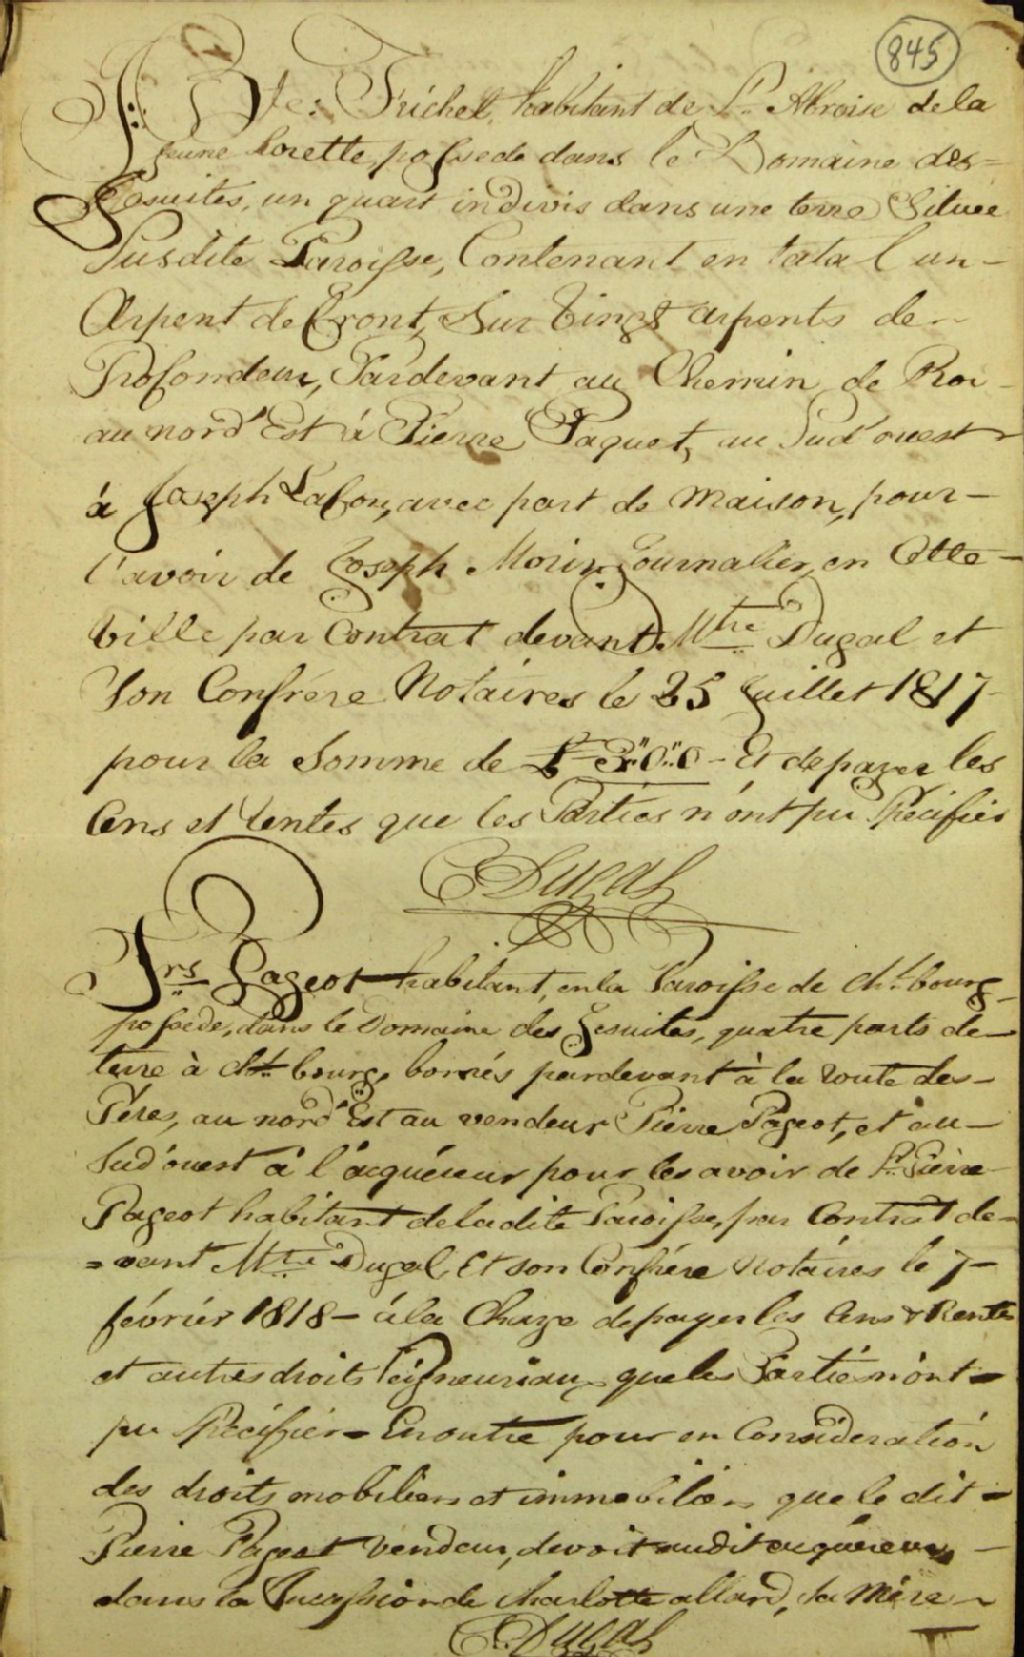 845
J: Bte: Trichel, habitant de St. Abroise de la
Jeune Lorette, possede dans le Domaine des=
Jesuites, un quart indivis dans une terre Située
Susdite Paroisse, Contenant en total un-
Arpent de front, Sur Vingt arpents de-
Profondeur, Pardevant au Chemin de Roi-
au nord Est à Pierre Paquet, au Sud'ouest
à Joseph Lafon, avec part de Maison, pour-
l'avoir de Joseph Morin Journalier, en Cette-
Ville par Contrat devant Mtre Dugal et
Son Confrére Notaires le 25 Juillet 1817
pour la Somme de £ 3"0"0 - Et de payer les
Cens et Rentes que les Parties n'ont pu Spécifier
C Dugal
Frs Pageot habitant, en la Paroisse de Cht. bourg
possede, dans le Domaine des Jesuites, quatre parts de-
terre à Cht. bourg, bornés pardevant à la route des-
Péres, au nord Est au vendeur Pierre Pageot, et au-
Sud'ouest à l'acquéreur pour les avoir de St. Pierre
Pageot habitant de la dite Paroisse, par Contrat de=
=vant Mtre Dugal, Et son Confrére Notaires le 7-
février 1818- à la Charge de payer les Cens & Rentes
et autres droits Seigneuriaux que les Parties n'ont-
pu Spécifier= En outre pour en Considération
des droits mobiliers et immobiliers que le dit-
Pierre Pageot Vendeur, devoit audit acquéreur, -
dans la Succession de Charlotte allard, sa Mére-
C. Dugal